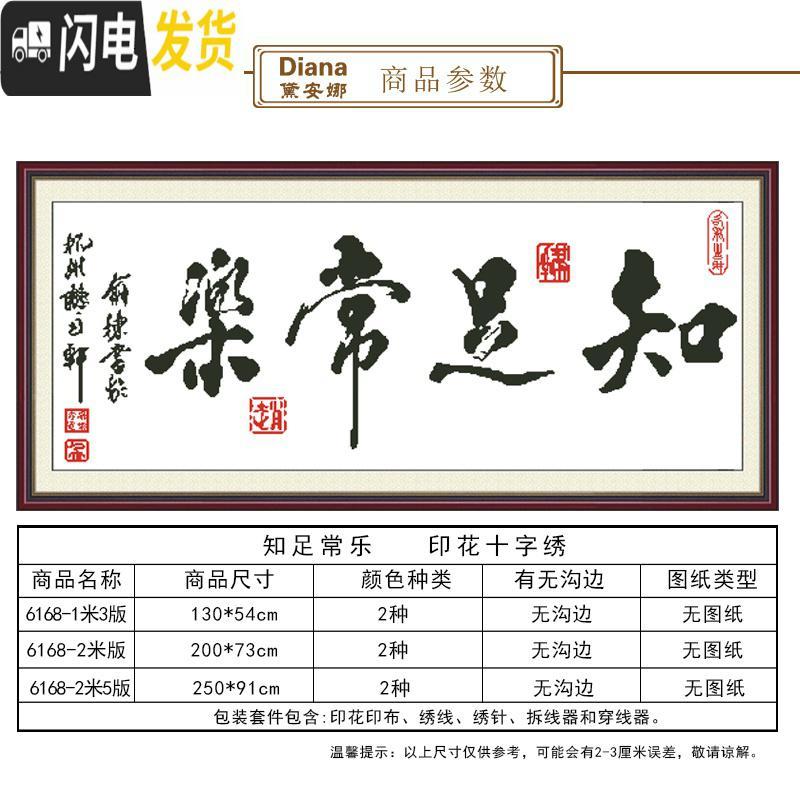 闪电发货
Diana
黛安娜
商品参数
知足常樂
知足常乐 印花十字绣
商品名称 商品尺寸 颜色种类 有无沟边 图纸类型
6168-1米3版 130*54cm 2种 无沟边 无图纸
6168-2米版 200*73cm 2种 无沟边 无图纸
6168-2米5版 250*91cm 2种 无沟边 无图纸
包装套件包含:印花印布、绣线、绣针、拆线器和穿线器。
温馨提示:以上尺寸仅供参考,可能会有2-3厘米误差,敬请谅解。